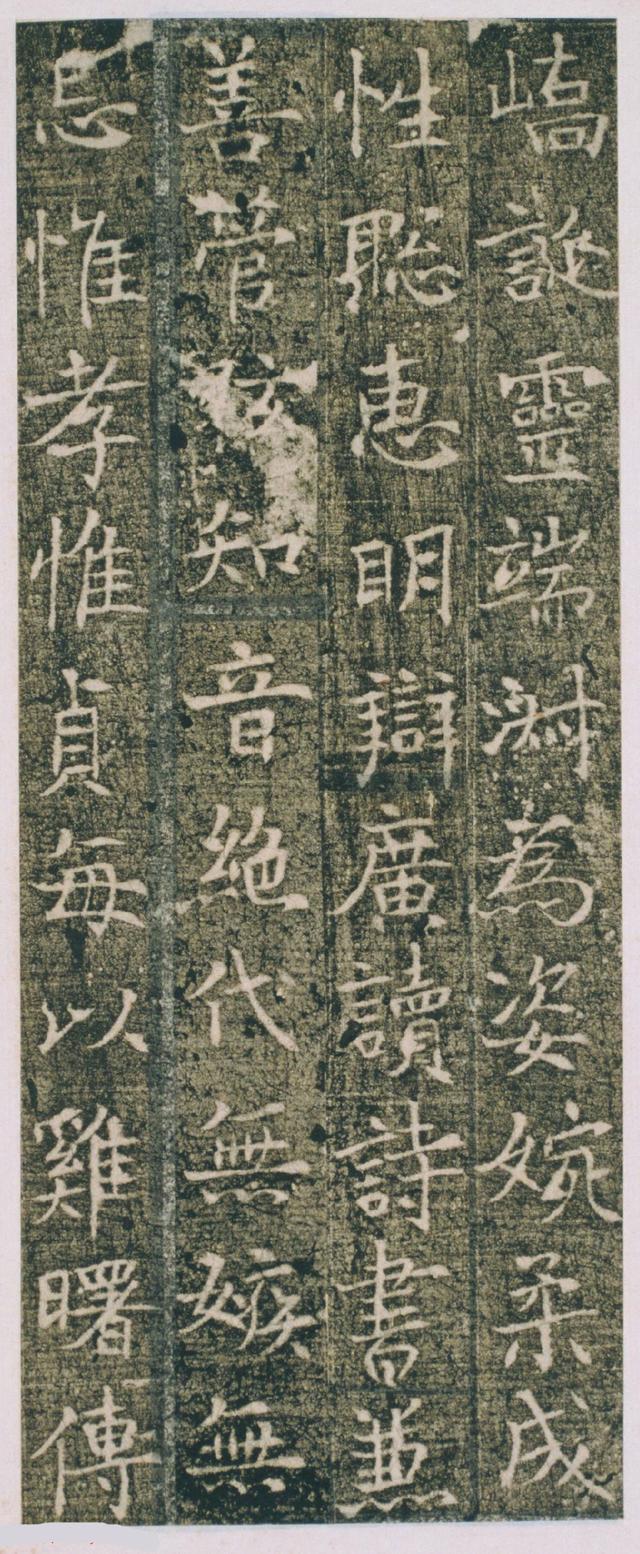 嶠誕靈端淋為姿婉柔成
性聡惠明辯廣讀詩書兼
善管弦知音絕代無嫉無
忌惟孝惟貞每以雞曙傳